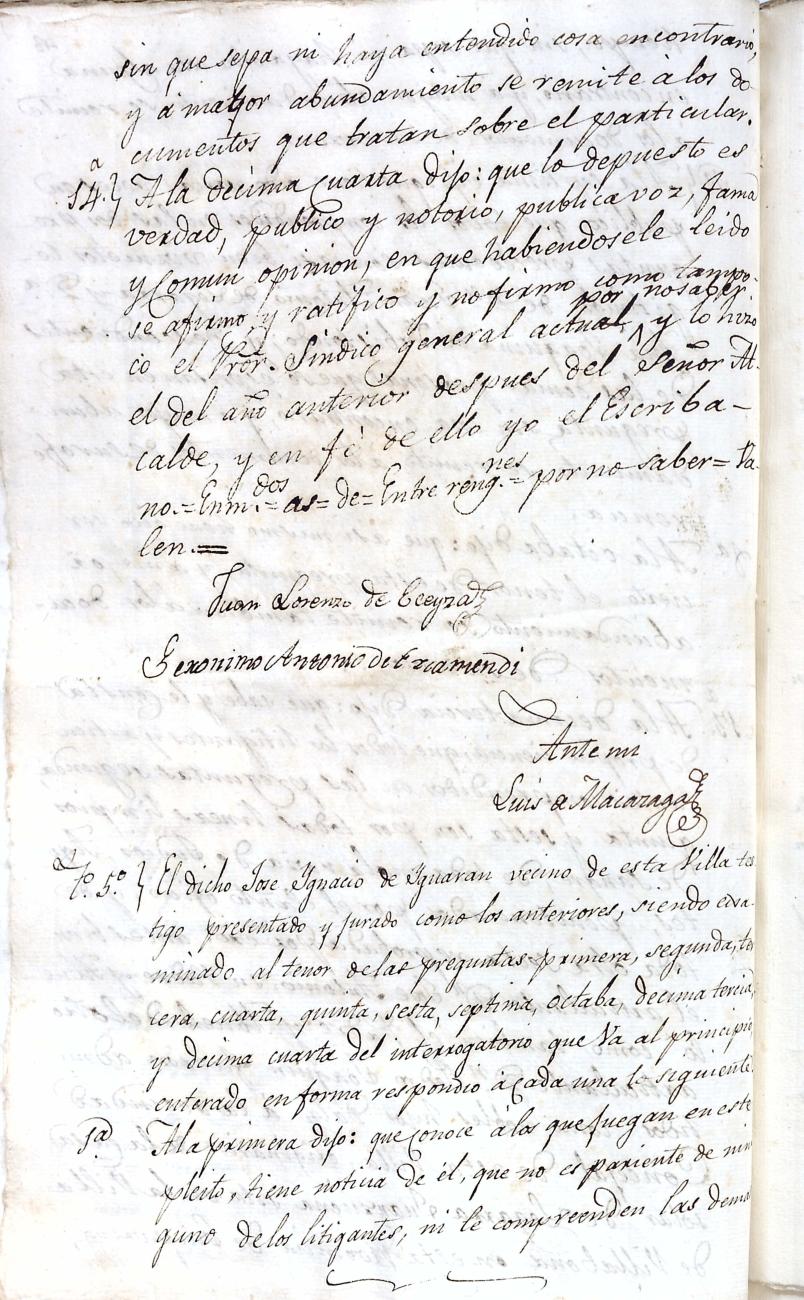 sin que sepa ni haya entendido cosa en contrario,
y á mayor abundamiento se remite à los do-
cumentos que tratan sobre el particular.
14.ª } A la decima cuarta dijo: que lo depuesto es
verdad, publico y notorio, publica voz, fama
y comun opinion, en que habiendosele leido
se afirmo, y ratifico y no firmo como tampo-
por no saber
co el Pror. Sindico general actual, ^ y lo hizo
el del año anterior despues del Señor Al-
calde, y en fé de ello yo el Escriba-
no.= Enm.dos= as= de= Entre reng.nes= por no saber= Va-
len.=
Juan Lorenzo de Eceyza
Geronimo Antonio de Ezcamendi
Ante mi
Luis de Macazaga
T.º 5.º } El dicho Jose Ygnacio de Yguaran vecino de esta Villa tes
tigo presentado y jurado como los anteriores, siendo esa-
minado al tenor de las preguntas primera, segunda, ter
cera, cuarta, quinta, sesta, septima, octaba, decima tercia,
y decima cuarta del interrogatorio que va al principio
enterado en forma respondio à cada una lo siguiente.
1.ª A la primera dijo: que conoce à los que juegan en este
pleito, tiene noticia de él, que no es pariente de nin
guno de los litigantes, ni le compreenden las dema